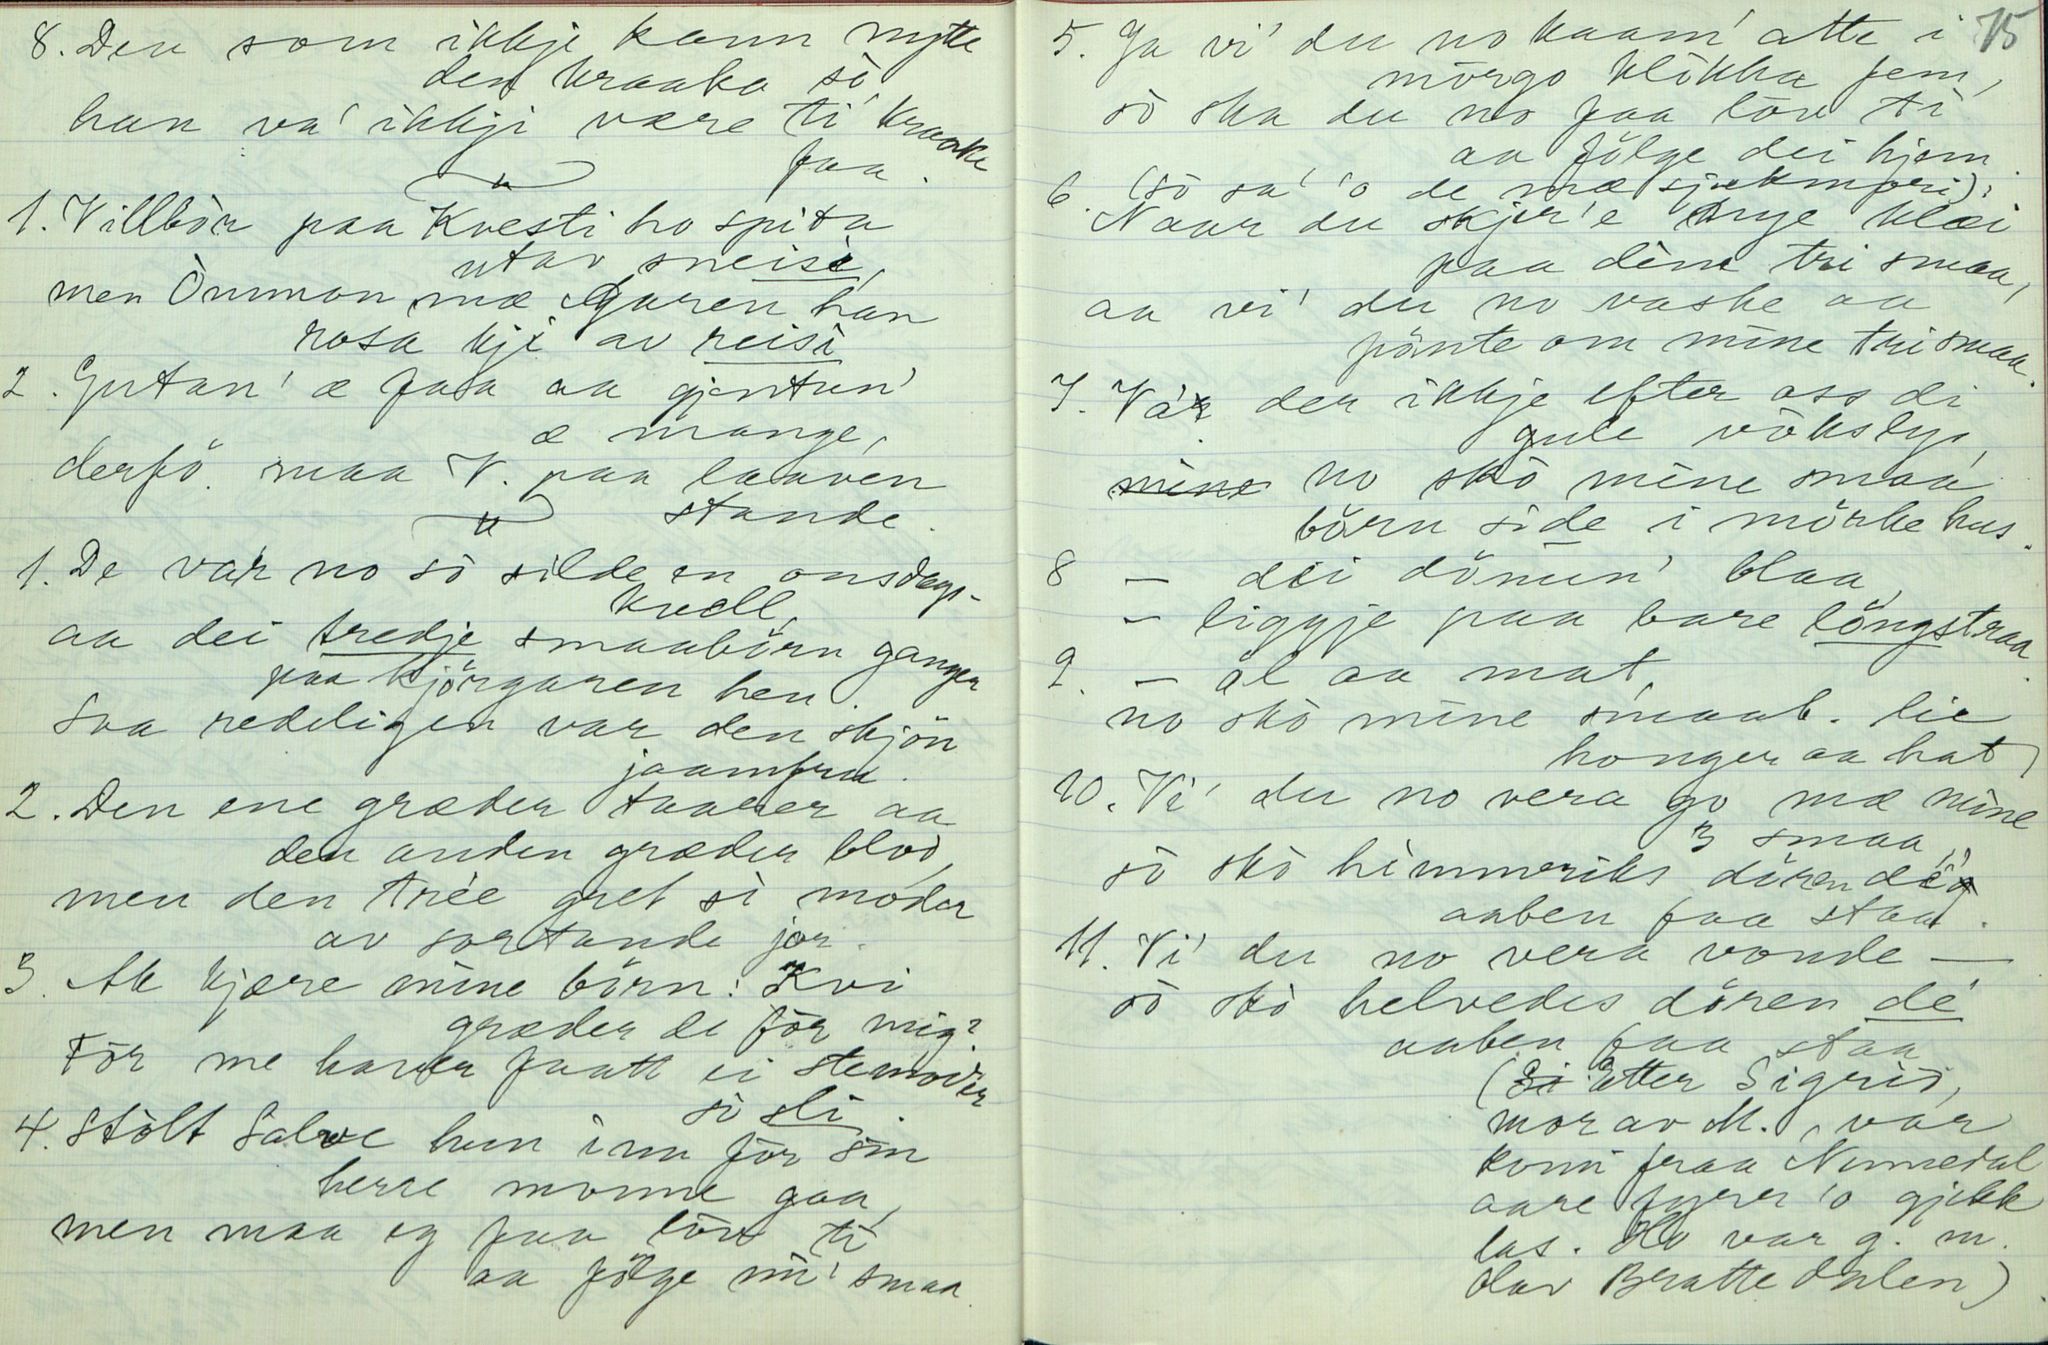 8. Den som ikkje kann nytte
den kraaka sò,
han va' ikkji være ti' kraake
faa.
1. Villbòr paa Kvesti ho spita
utav sneisi,
men Òmmon mæ Garen han
rosa kji av reisi
2. Gutan' æ faa aa gjentun'
æ mange,
derfò maa V. paa laaven
stande.
1. De var no sò silde en onsdags-
kvell,
aa dei tredje smaabörn ganger
paa kjörgaren hen.
Saa redeligen var den skjön
jaamfru.
2. Den ene græder taarer aa
den anden græder blod,
men den trèe gret si moder
av sortande jor.
3. Ak kjære mine börn: Kvi
græder de för mig?
För me haver faatt ei stemoder
sò sli.
4. Stòlt Salve hun inn för sin
herre monne gaa,
men maa eg faa lòv ti
aa fölge mi' smaa.
75
5. Ja vi' du no kaam' atte i
mòrgo klòkka fem,
sò ska du no faa lòv ti
aa fölge dei hjem.
6. (sò sa' 'o de mæ sjukmori):
Naar du skjer'e nye klæi
paa dine tri smaa,
aa vi' du no vaske aa
pönte om mine tri smaa.
7. Var der ikkje efter oss di
gule vòkslys,
mine no skò mine smaa
börn side i mörke hus.
8 – dei dönun' blaa,
– liggje paa bare löngstraa.
9. – öl aa mat,
no skò mine smaab. lie
honger aa hat,
10. Vi' du no vera go mæ mine
3 smaa,
sò skò himmeriks dören dé
aaben faa staa.
11. Vi' du no vera vonde —
sò skò helvedes dören dé
aaben faa staa
(Etter Sigrid,
mor av M., var
komi fraa Numedal
aare fyrer 'o gjekk
las. Ho var g. m.
Olav Bratte dalen)